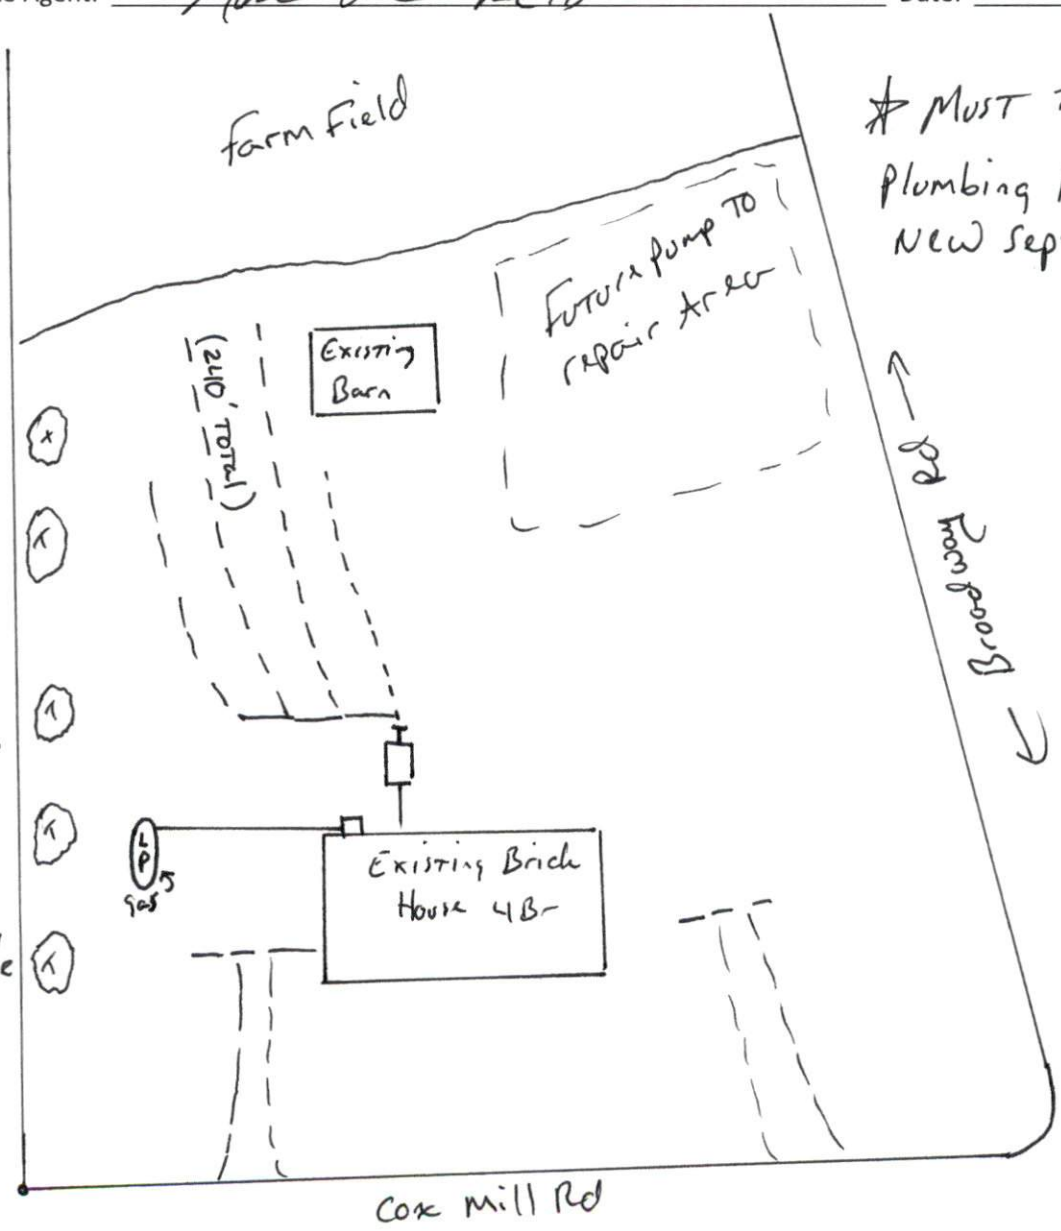 Date:
Farm Field
* Must
Plumbing
New Sep
Future Pump To
repair Area
Existing
Barn
(240' Total)
Broadway Rd
LP
gas
Existing Brick
House 4Br
Cox Mill Rd